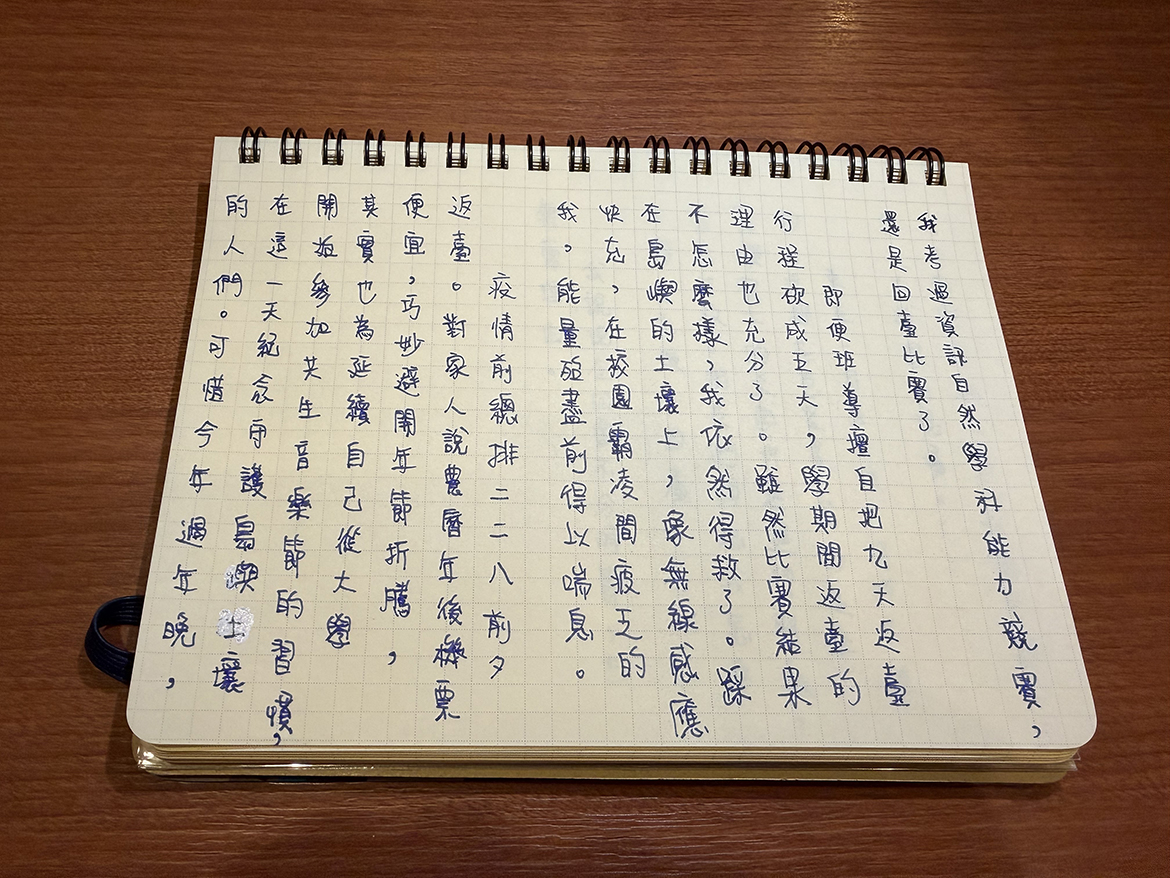 我考過資訊自然學科能力競賽，
還是回臺比賽了。
即便班導擅自把九天返臺
行程砍成五天，學期間返臺的
理由也充分了。雖然比賽結果
不怎麼樣，我依然得救了。踩
在島嶼的土壤上，象無線感應
快充，在校園霸凌間疲乏的
我，能量殆盡前得以喘息。
疫情前總排二二八前夕
返臺。對家人說農曆年後機票
便宜，巧妙避開年節折騰，
其實也為延續自己從大學
開始參加共生音樂節的習慣，
在這一天紀念守護島嶼土壤
的人們。可惜今年過年晚，